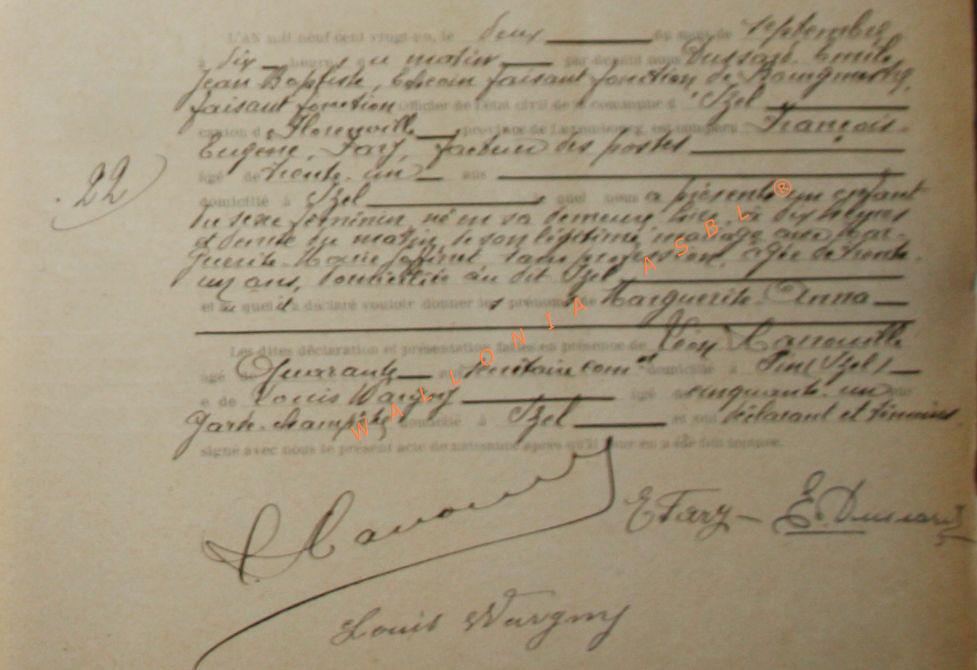 L'AN mil neuf cent vingt-un, le deux du mois de septembre
à dix heures du matin par devant nous Dussard Emile
Jean Baptiste, Echevin faisant fonction de Bourgmestre,
faisant fonction Officier de l'état civil de la commune d'Izel
canton de Florenville province de Luxembourg, est comparu François-
Eugène, Fary, facteur des postes
22
âgé de trente-un ans
domicilié à Izel lequel nous a présenté un enfant
du sexe féminin né en sa demeure à dix heures
du matin, de son légitime mariage avec Mar-
guerite-Marie sans profession, âgée de trente-
un ans, domiciliée au dit Izel
et auquel il a déclaré vouloir donner les prénoms de Marguerite-Anna
Les dites déclaration et présentation faites en présence de Léon
âgé de Quarante ans secrétaire comal domicilié à Pin (Izel)
et de Louis Wargny âgé de cinquante-un ans
Garde-champêtre domicilié à Izel et ont déclarant et témoins
signé avec nous le présent acte de naissance après qu'il leur en a été fait lecture.
WALLONIA ASBL ®
E Fary E. Dussard
Louis Wargny